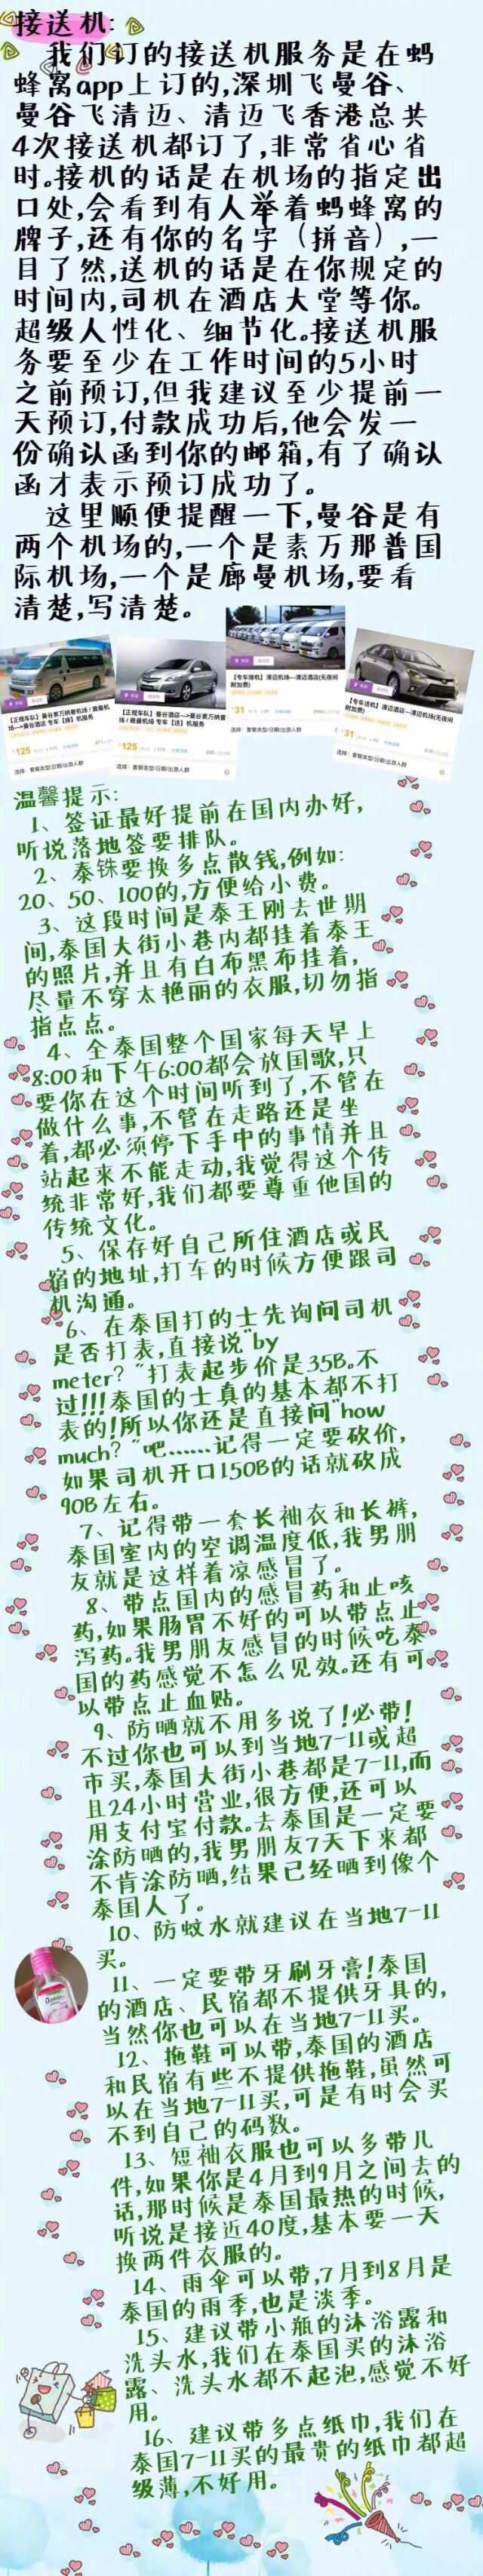 接送机:
我们订的接送机服务是在蚂
蜂窝app上订的,深圳飞曼谷、
曼谷飞清迈、清迈飞香港总共
4次接送机都订了,非常省心省
时。接机的话是在机场的指定出
口处,会看到有人举着蚂蜂窝的
牌子,还有你的名字（拼音）,一
目了然,送机的话是在你规定的
时间内,司机在酒店大堂等你。
超级人性化、细节化。接送机服
务要至少在工作时间的5小时
之前预订,但我建议至少提前一
天预订,付款成功后,他会发一
份确认函到你的邮箱,有了确认
函才表示预订成功了。
这里顺便提醒一下,曼谷是有
两个机场的,一个是素万那普国
际机场,一个是廊曼机场,要看
清楚,写清楚。
125
选择：套餐类型/日期/出游人群
125
选择：套餐类型/日期/出游人群
【专车接机】清迈机场—清迈酒店(无夜间
附加费)
31
选择：套餐类型/日期/出游人群
【专车送机】清迈酒店—清迈机场(无夜间
附加费)
31
选择：套餐类型/日期/出游人群
温馨提示:
1、签证最好提前在国内办好,
听说落地签要排队。
2、泰铢要换多点散钱,例如:
20、50、100的,方便给小费。
3、这段时间是泰王刚去世期
间,泰国大街小巷内都挂着泰王
的照片,并且有白布黑布挂着,
尽量不穿太艳丽的衣服,切勿指
指点点。
4、全泰国整个国家每天早上
8:00和下午6:00都会放国歌,只
要你在这个时间听到了,不管在
做什么事,不管在走路还是坐
着,都必须停下手中的事情并且
站起来不能走动,我觉得这个传
统非常好,我们都要尊重他国的
传统文化。
5、保存好自己所住酒店或民
宿的地址,打车的时候方便跟司
机沟通。
6、在泰国打的士先询问司机
是否打表,直接说"by
meter？"打表起步价是35B。不
过!!!泰国的士真的基本都不打
表的!所以你还是直接问"how
much？"吧……记得一定要砍价,
如果司机开口150B的话就砍成
90B左右。
7、记得带一套长袖衣和长裤,
泰国室内的空调温度低,我男朋
友就是这样着凉感冒了。
8、带点国内的感冒药和止咳
药,如果肠胃不好的可以带点止
泻药。我男朋友感冒的时候吃泰
国的药感觉不怎么见效。还有可
以带点止血贴。
9、防晒就不用多说了!必带!
不过你也可以到当地7-11或超
市买,泰国大街小巷都是7-11,而
且24小时营业,很方便,还可以
用支付宝付款。去泰国是一定要
涂防晒的,我男朋友7天下来都
不肯涂防晒,结果已经晒到像个
泰国人了。
10、防蚊水就建议在当地7-11
买。
11、一定要带牙刷牙膏!泰国
的酒店、民宿都不提供牙具的,
当然你也可以在当地7-11买。
12、拖鞋可以带,泰国的酒店
和民宿有些不提供拖鞋,虽然可
以在当地7-11买,可是有时会买
不到自己的码数。
13、短袖衣服也可以多带几
件,如果你是4月到9月之间去的
话,那时候是泰国最热的时候,
听说是接近40度,基本要一天
换两件衣服的。
14、雨伞可以带,7月到8月是
泰国的雨季,也是淡季。
15、建议带小瓶的沐浴露和
洗头水,我们在泰国买的沐浴
露、洗头水都不起泡,感觉不好
用。
16、建议带多点纸巾,我们在
泰国7-11买的最贵的纸巾都超
级薄,不好用。